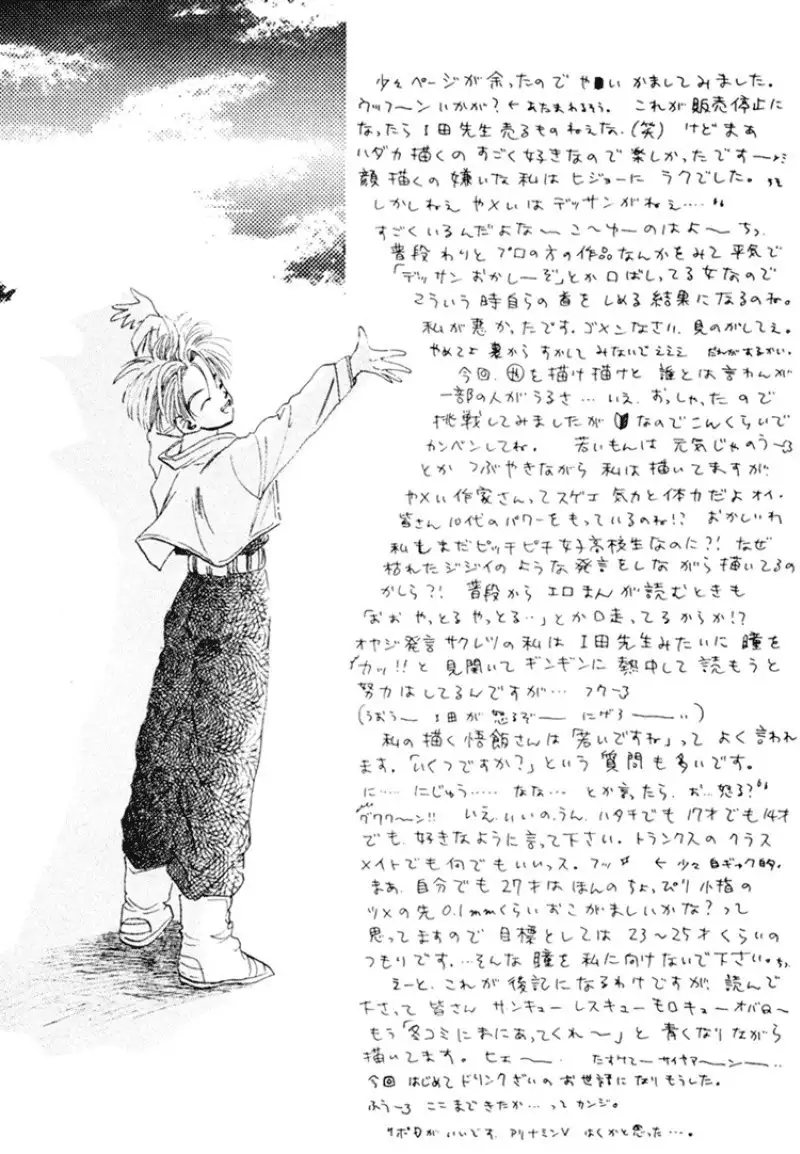 少々ページが余ったのでや■いかましてみました。
ウッフ〜ンいかが?←あたまわるそう。これが販売停止に
なったらI田先生売るものねえな、(笑) けどまぁ
ハダカ描くのすごく好きなので楽しかったです〜
顔描くの嫌いな私はヒジョーにラクでした。
しかしねえ やメいはデッサンがねえ‥‥
すごくいるんだよな〜 こ〜ゆーのはよ〜ちっ
普段わりとプロの方の作品なんかをみて平気で
「デッサンおかしーぞ」とか口ばしってる女なので
こういう時自らの首をしめる結果になるのね。
私が悪かったです。ゴメンなさい、見のがしてぇ。
やめてよ 裏からすかしてみないでえええ だれがするかい。
今回、を描け描けと 誰とは言わんが
一部の人がうるさ…いえ、おっしゃったので
挑戦してみましたが🔰なのでこんくらいで
カンベンしてね。 若いもんは元気じゃのう〜
とか つぶやきながら私は描いてますが、
やメい作家さんってスゲエ気力と体力だよオイ・
皆さん10代のパワーをもっているのね!? おかしいわ
私もまだピッチピチ女子高校生なのに?! なぜ
枯れたジジイのような発言をしながら描いてるの
かしら?! 普段からエロまんが読むときも
「おお やっとるやっとる‥」とか口走ってるからか!?
オヤジ発言サクレツの私はI田先生みたいに瞳を
カッ!!と見開いてギンギンに熱中して読もうと
努力はしてるんですが… フゥ〜
(うおう〜 I田が怒るぞ〜 にげろ〜‥)
私の描く悟飯さんは「若いですね」ってよく言われ
ます。「いくつですか?」という質問も多いです。
に…‥にじゅう‥‥‥なな… とか言ったら、お…怒る?
グワワ〜ン!! いえ、いいの、うん、ハタチでも17才でも14才
でも、好きなように言って下さい。トランクスのクラス
メイトでも何でもいいっス。フッ ←少々自ギャク的、
まぁ、自分でも27才はほんのちょっぴり小指の
ツメの先0.1mmくらいおこがましいかな?って
思ってますので目標としては23〜25才くらいの
つもりです。…そんな瞳を私に向けないで下さい。
えーと、これが後記になるわけですが、読んで
下さって皆さん サンキュー レスキュー モロキュー オバQ〜
もう「冬コミにまにあってくれ〜」と青くなりながら
描いてます。ヒェ〜・ たすけてーサイヤマーンー‥
今回はじめてドリンクざいのお世話になりもうした。
ふぅ〜 ここまできたか…ってカンジ。
リポDがいいです、アリナミンV はくかと思った…。